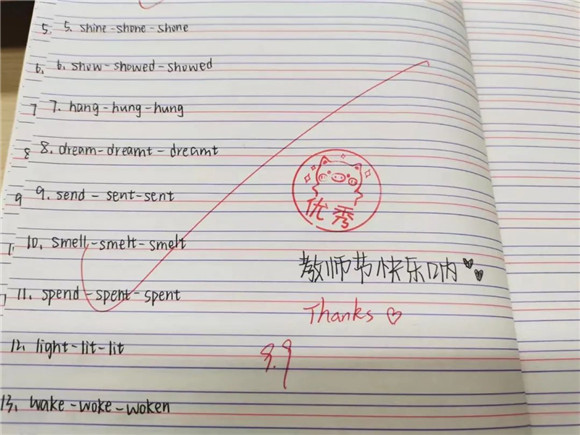 5 5. shine-shone-shone
6. 6. show-showed-showed
7 7. hang-hung-hung
8 8. dream-dreamt-dreamt
9 9. send-sent-sent
10. smell-smelt-smelt
11. spend-spent-spent
12. light-lit-lit
13. wake-woke-woken
优秀
教师节快乐呐
Thanks
9.9